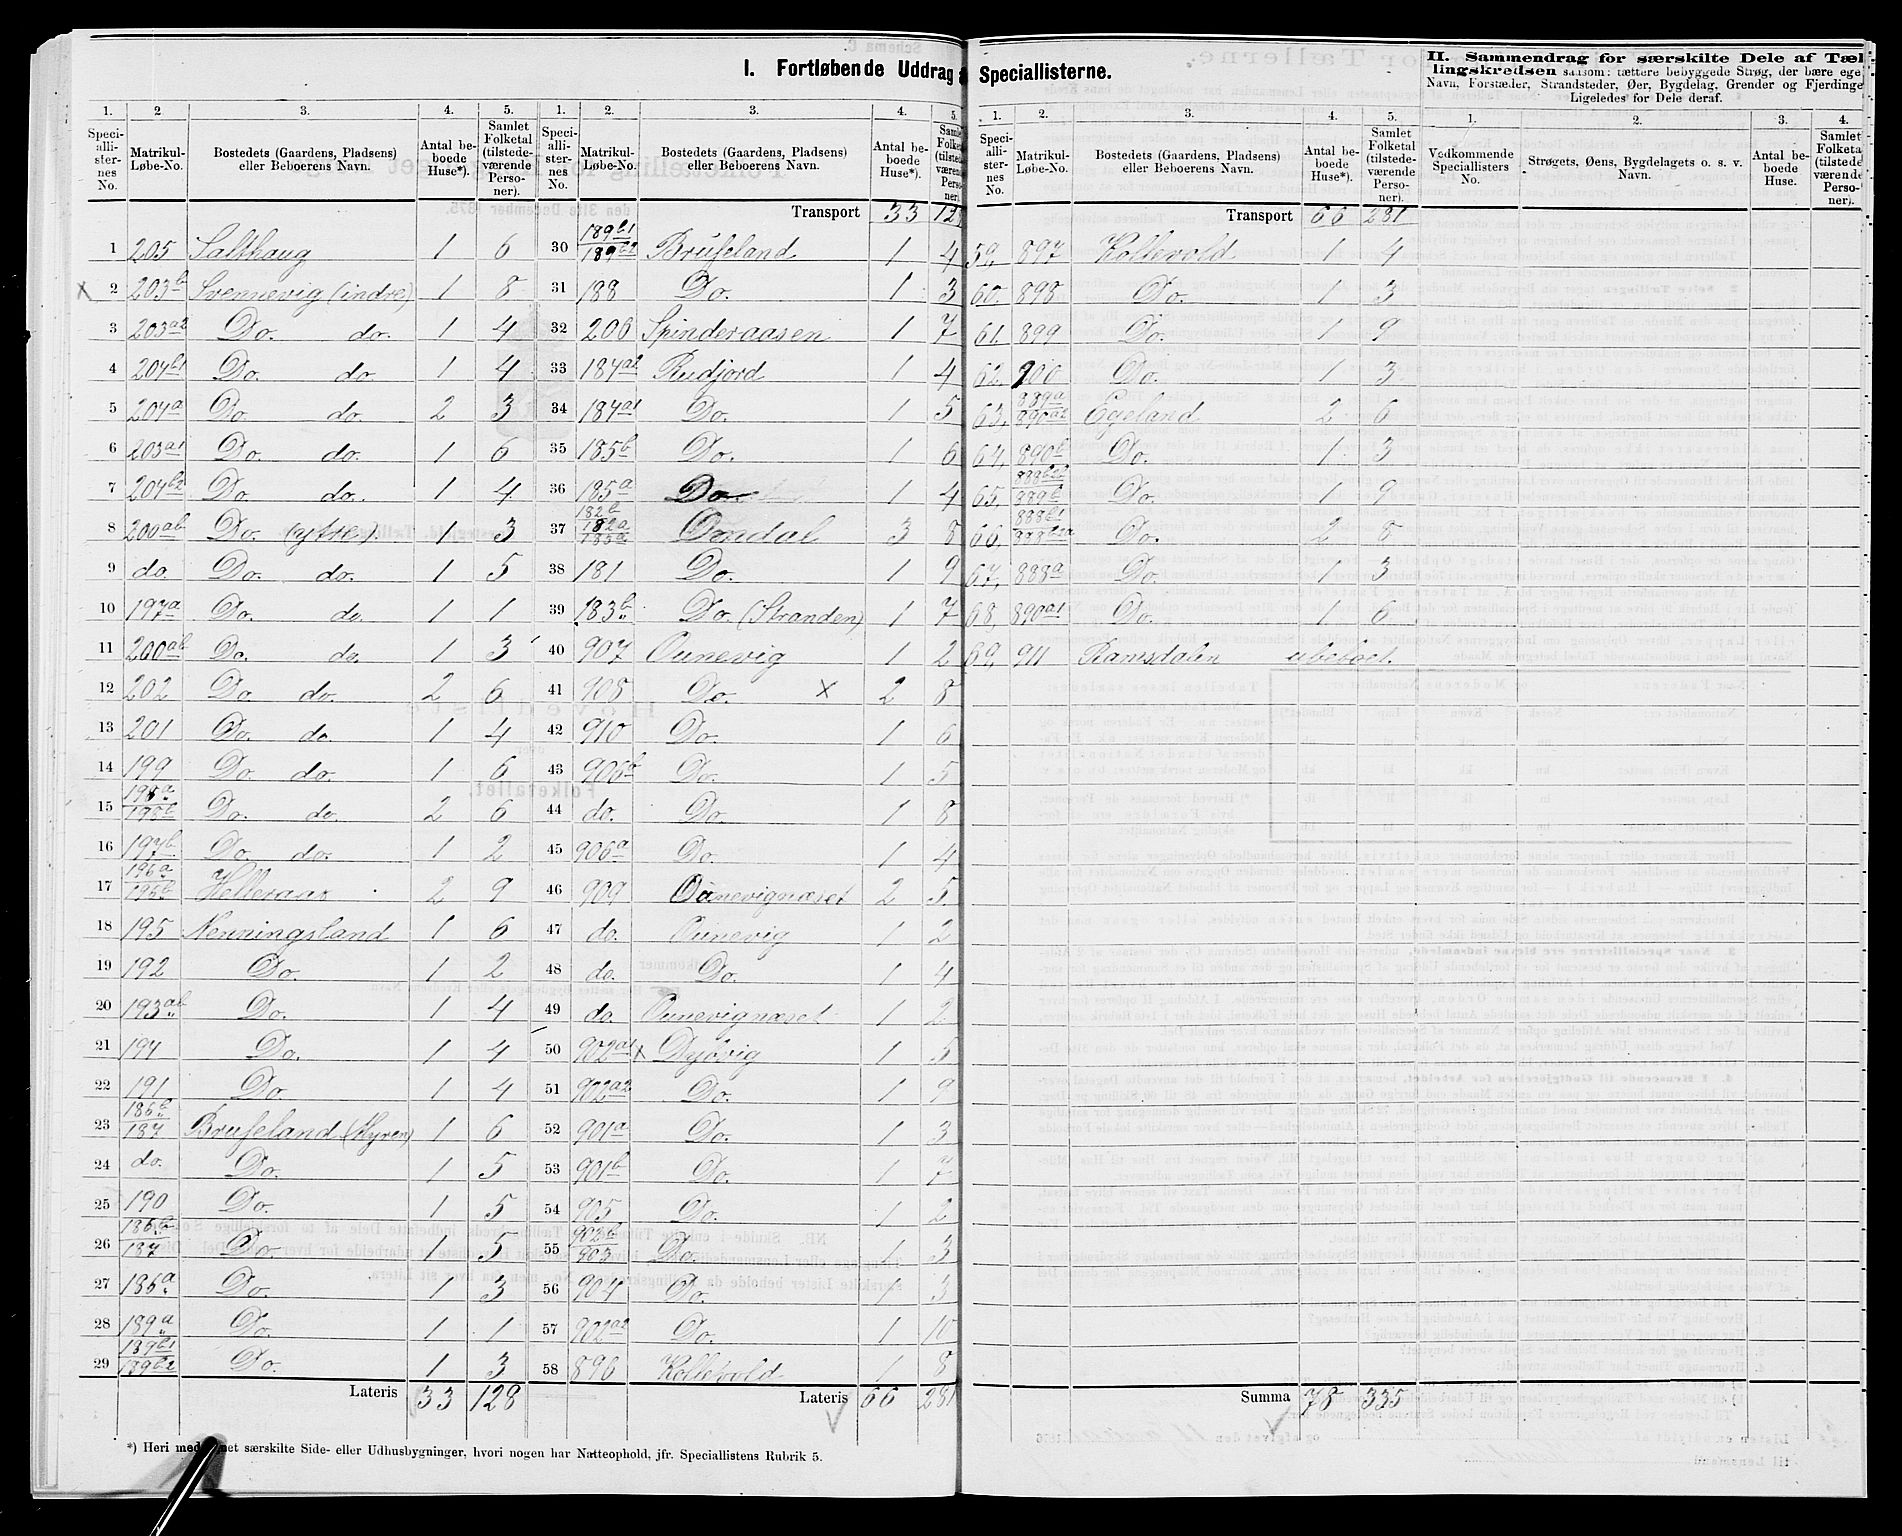 I. Fortløbende Uddrag Speciallisterne.
II. Sammendrag for særskilte Dele af Tæl-
lingskredsen saasom: tættere bebyggede Strøg, der bære ege
Navn, Forstæder, Strandsteder, Øer, Bygdelag, Grender og Fjerdinge
Ligeledes for Dele deraf.
1. 2 3. 4. 5. 1. 2. 3. 4. 5.
Speci-allister-nes No. Matrikul-Løbe-No. Bostedets (Gaardens, Pladsens) eller Beboerens Navn. Antal be-boede Huse*). Samlet Folketal (tilstede-værende Perso-ner).
Transport 33 128
1 205 Salthaug 1 6
2 203b Svennevig (indre) 1 8
3 203a2 Do. do. 1 4
4 204b1 Do. do. 1 4
5 204a Do do. 2 3
6 203a1 Do. do. 1 6
7 204b2 Do do. 1 4
8 200ab Do. (ytre). 1 3
9 do. Do. do. 1 5
10 197a Do. do. 1 1
11 200ab Do. do. 1 3
12 202 Do. do. 2 6
13 201 Do. do. 1 4
14 199 Do. do. 1 6
15 198a 198b Do. do. 2 6
16 197b Do. do. 1 2
17 196a 196b Helleraas 2 9
18 195 Nenningsland 1 6
19 192 Do. 1 2
20 193ab Do. 1 4
21 194 Do. 1 4
22 191 Do. 1 4
23 186b 187 Bruseland (Myren) 1 6
24 do. Do. 1 5
25 190 Do. 1 5
26 186b 187 Do. 1 5
27 186a Do. 1 3
28 189a Do. 1 1
29 189b1 189b2 Do. 1 3
Lateris 33 128
30 189b1 189b2 Bruseland 1 4
31 188 Do. 1 3
32 206 Spinderaasen 1 7
33 184a2 Rudjord 1 4
34 184a1 Do. 1 5
35 185b Do. 1 6
36 185a Do. 1 4
37 182b 182a 183a Omdal 3 8
38 181 Do. 1 9
39 183b Do. (Stranden) 1 7
40 907 Ounevig 1 2
41 908 Do. x 2 8
42 910 Do. 1 6
43 906b Do. 1 5
44 do. Do. 1 8
45 906a Do. 1 4
46 909 Ounevignæset 2 5
47 do. Ounevig 1 2
48 do. Do. 1 4
49 do. Ounevignæset 1 2
50 902a1 x Dyövig 1 5
51 902a2 Do. 1 9
52 901a Do. 1 3
53 901b Do. 1 7
54 905 Do. 1 2
55 902b 903 Do. 1 3
56 904 Do. 1 3
57 902a2 Do. 1 10
58 896 Kollevold 1 8
Lateris 66 281
*) Heri medregnet særskilte Side- eller Udhusbygninger, hvori nogen har Natteophold, jfr. Speciallistens Rubrik 5.
1. 2. 3. 4. 5. 1. 2. 3. 4.
Speci-allister-nes No. Matrikul-Løbe-No. Bostedets (Gaardens, Pladsens) eller Beboerens Navn. Antal be-boede Huse*). Samlet Folketal (tilstede-værende Perso-ner).
Vedkommende Speciallisters No. Strøgets, Øens, Bygdelagets o. s. v. Navn. Antal be-boede Huse. Samlet Folketal (tilstede værende Perso-ner).
Transport 66 281
59, 897 Kollevold 1 4
60. 898 Do. 1 3
61. 899 Do. 1 9
62. 900 Do. 1 3
63, 889a 890a2 Egeland 2 6
64, 890b Do. 1 3
65, 889b Do. 1 9
66, 888b1 Do. 2 8
67, 888a Do. 1 3
68, 890a1 Do. 1 6
69, 911 Ramsdalen ubeboet.
Summa 78 335